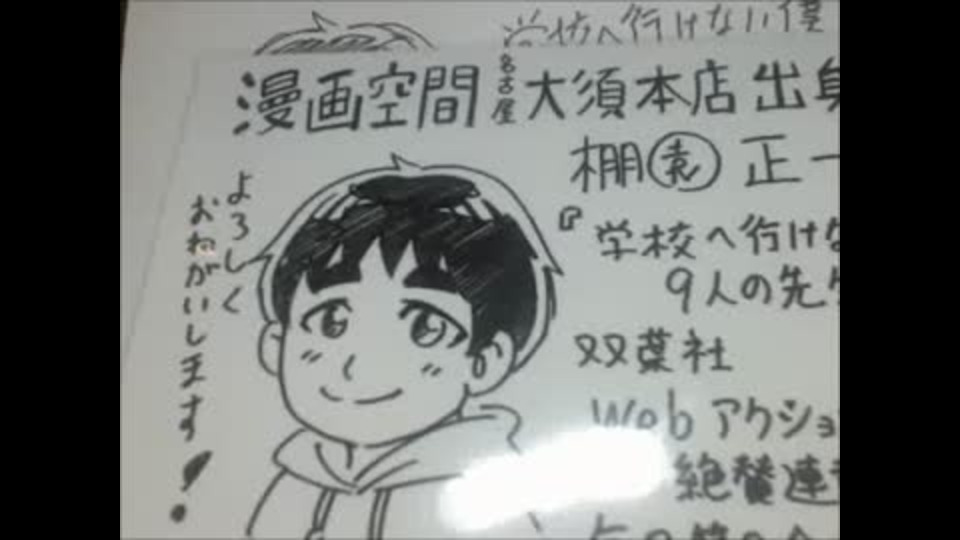 校へ行けない僕
漫画空間 名古屋 大須本店 出身
棚園 正一
『学校へ行けな
9人の先生
双葉社
Web アクショ
絶賛連
よろしく
おねがいします!